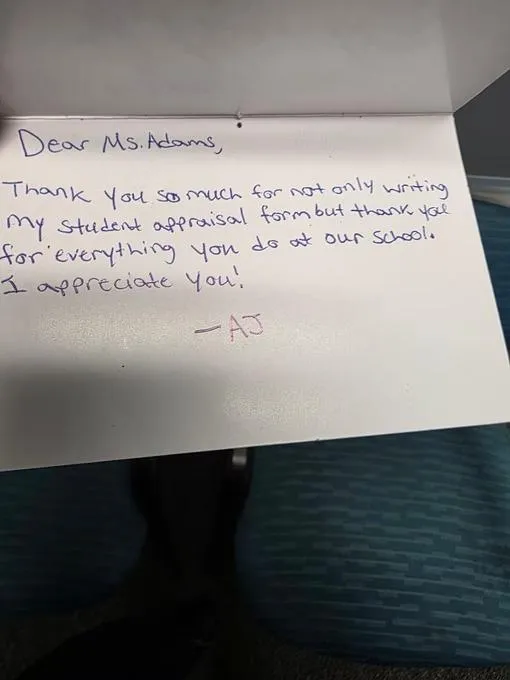 Dear Ms. Adams,
Thank you so much for not only writing
my student appraisal form but thank you
for everything you do at our school.
I appreciate you!
— AJ